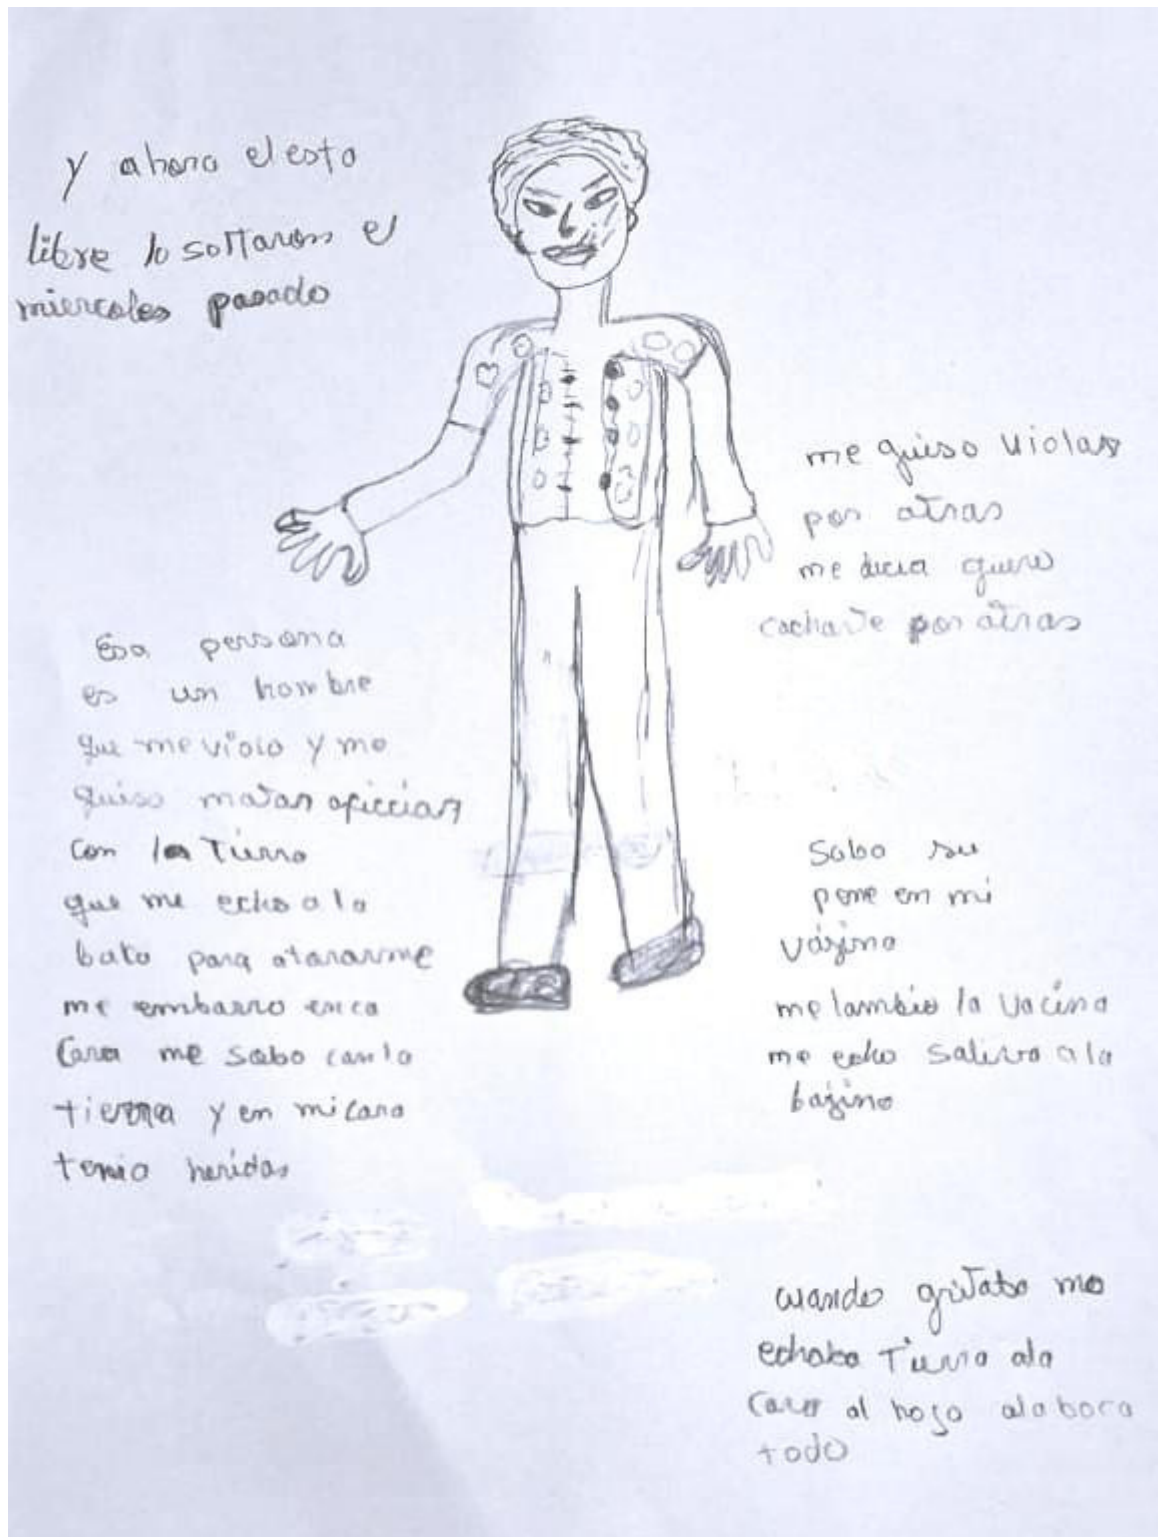 y ahora el esta
libre lo soltaron el
miercoles pasado
me quiso violar
por atras
me dicia quiero
cacharte por atras
Esa persona
es un hombre
que me violo y me
quiso matar
con la Tierra
que me echo a la
para
me embarro
Cara me sobo con la
tierra y en mi cara
tenia heridas
Sobo su
pene en mi
vájina
me lambio la vacina
me echo saliva a la
bajina
cuando gritaba me
echaba Tierra ala
cara al hojo ala boca
todo